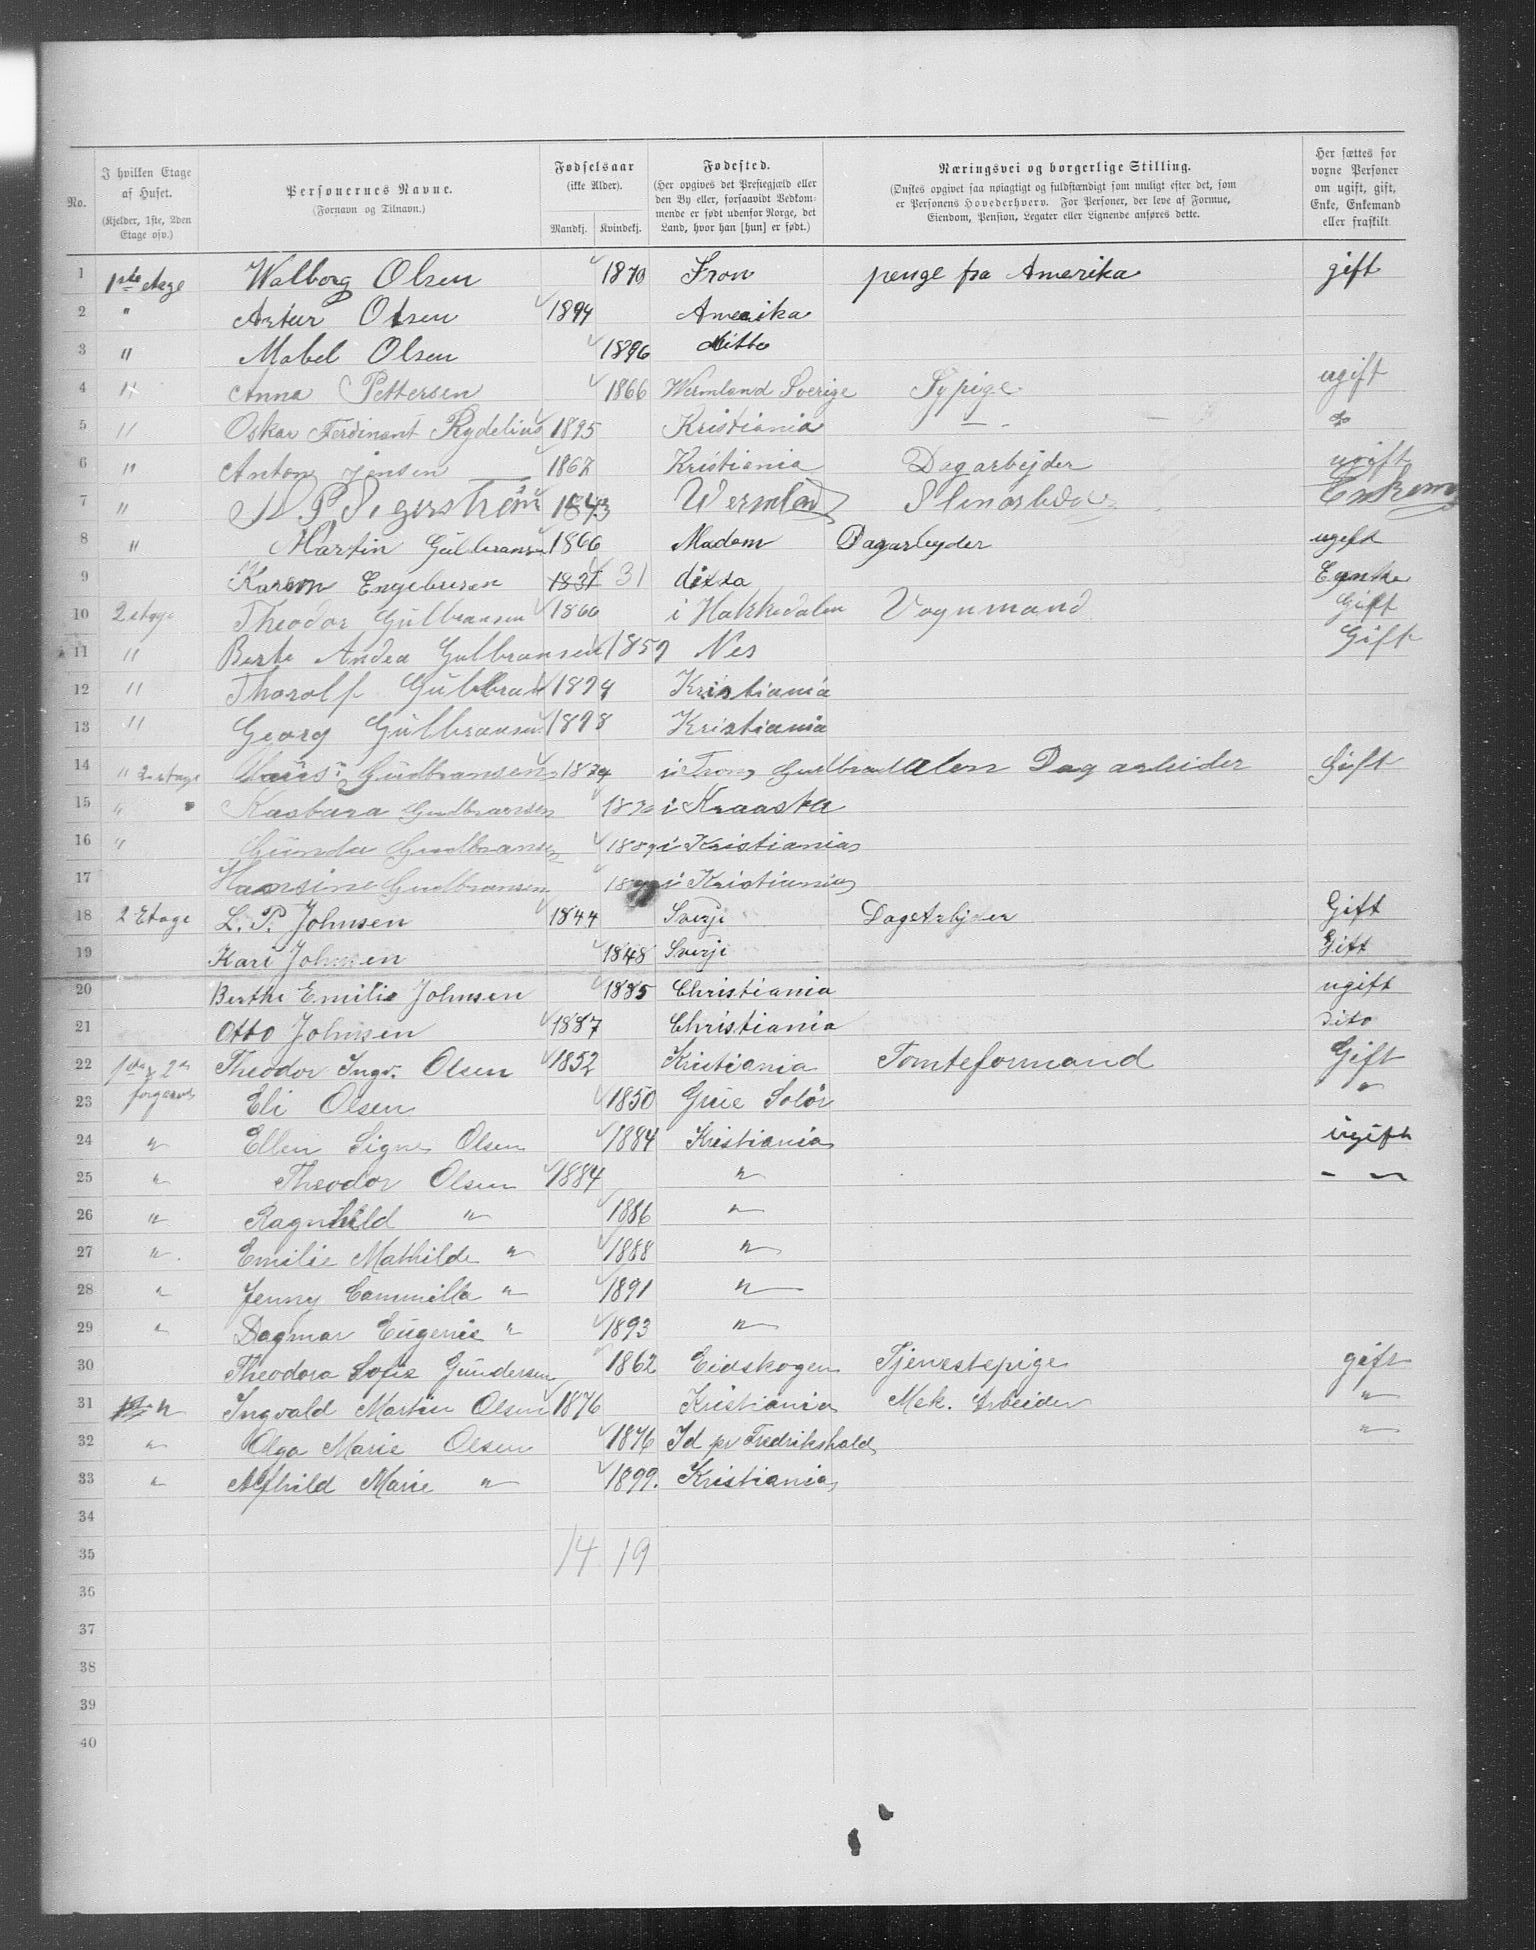 No. | I hvilken Etage af Huset. (Kjelder, 1ste, 2den Etage osv.) | Personernes Navne. (Fornavn og Tilnavn.) | Fødselsaar (ikke Alder). Mandkj. Kvindekj. | Fødested. (Her opgives det Prestegjæld eller den By eller, forsaavidt Vedkommende er født udenfor Norge, det Land, hvor han [hun] er født.) | Næringsvei og borgerlige Stilling. (Ønskes opgivet saa nøiagtigt og fuldstændigt som muligt efter det, som er Personens Hovederhverv. For Personer, der leve af Formue, Eiendom, Pension, Legater eller Lignende anføres dette.) | Her sættes for voxne Personer om ugift, gift, Enke, Enkemand eller fraskilt
1 1ste Etage Walborg Olsen 1870 Fron penge fra Amerika gift
2 " Artur Olsen 1894 Amerika
3 " Mabel Olsen 1896 ditto
4 " Anna Pettersen 1866 Wermland Sverige Sypige ugift
5 " Oskar Ferdinant Rydelius 1895 Kristiania — do
6 " Anton Jensen 1867 Kristiania Dagarbejder ugift
7 " P Segerström 1843 Wermland Enkem
8 " Martin Gulbransen 1866 Modom Dagarbyder ugift
9 " Karen Engebresen 1831 31 ditto Enke
10 2 etage Theodor Gulbransen 1860 i Hakkedalen Vognmand Gift
11 " Berte Andea Gulbransen 1859 Nes Gift
12 " Thorolf Gulbran 1894 Kristiania
13 " Georg Gulbransen 1898 Kristiania
14 " 2 etage Gudbransen 1874 i Fron Gudbrandalen Dagarbeider Gift
15 " Kasbara Gudbransen i Kraaska
16 " Gunda Gudbransen i Kristiania
17 Hansine Gudbransen i Kristiania
18 2 Etage L. P. Johnsen 1844 Sverje DagArbjder Gift
19 Kari Johnsen 1848 Sverje Gift
20 Berthe Emilie Johnsen 1885 Christiania ugift
21 Otto Johnsen 1887 Christiania dito
22 1st & 2n Theodor Ingv. Olsen 1852 Kristiania Tomteformand Gift
23 forgaard Eli Olsen 1850 Grue Solör "
24 " Ellen Signe Olsen 1884 Kristiania ugift
25 " Theodor Olsen 1884 " — "
26 " Ragnhild " 1886 "
27 " Emilie Mathilde " 1888 "
28 " Jenny Cammilla " 1891 "
29 " Dagmar Eugenie " 1893 "
30 Theodora Sofie Gundersen 1862 Eidskogen Tjenestepige gift
31 " Ingvald Martin Olsen 1876 Kristiania Mek. Arbeider "
32 " Olga Marie Olsen 1876 Id pr Fredrikshald "
33 " Alfhild Marie " 1899. Kristiania
34
35 14 19
36
37
38
39
40